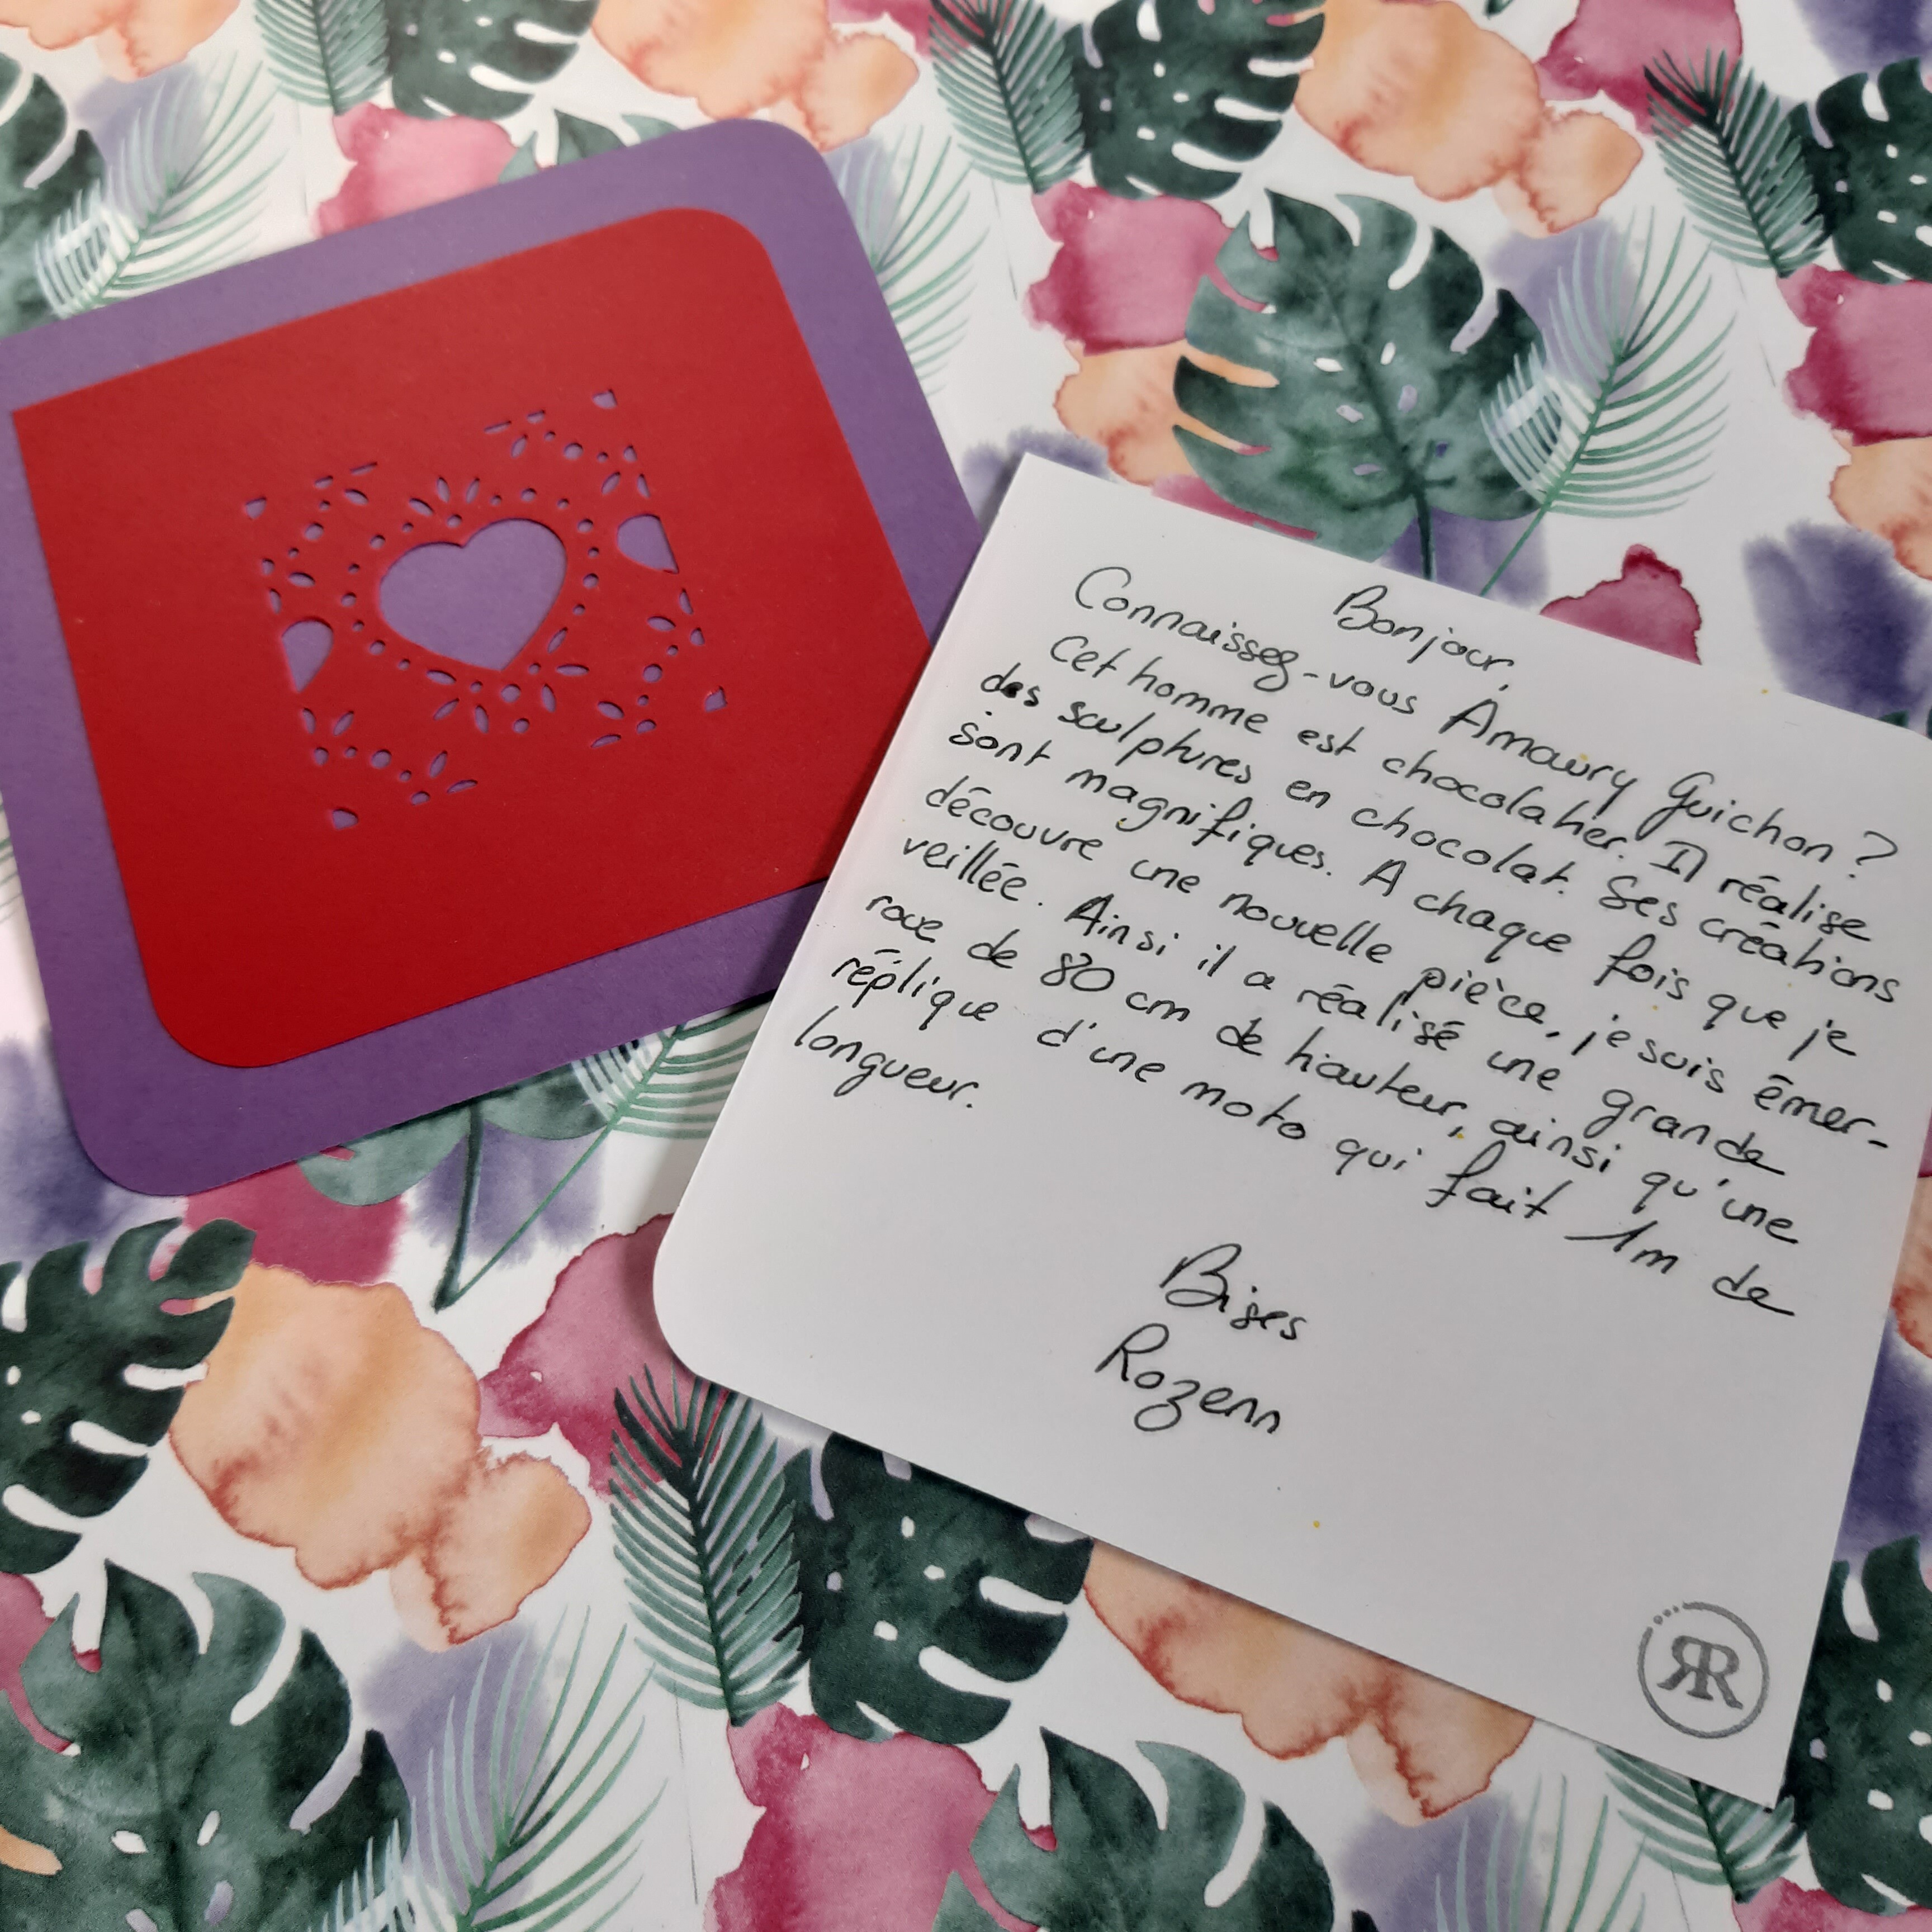 Bonjour,
Connaissez-vous Amaury Guichon ?
Cet homme est chocolatier. Il réalise
des sculptures en chocolat. Ses créations
sont magnifiques. A chaque fois que je
découvre une nouvelle pièce, je suis émer-
veillée. Ainsi il a réalisé une grande
roue de 80 cm de hauteur, ainsi qu'une
réplique d'une moto qui fait 1m de
longueur.
Bises
Rozenn
RR